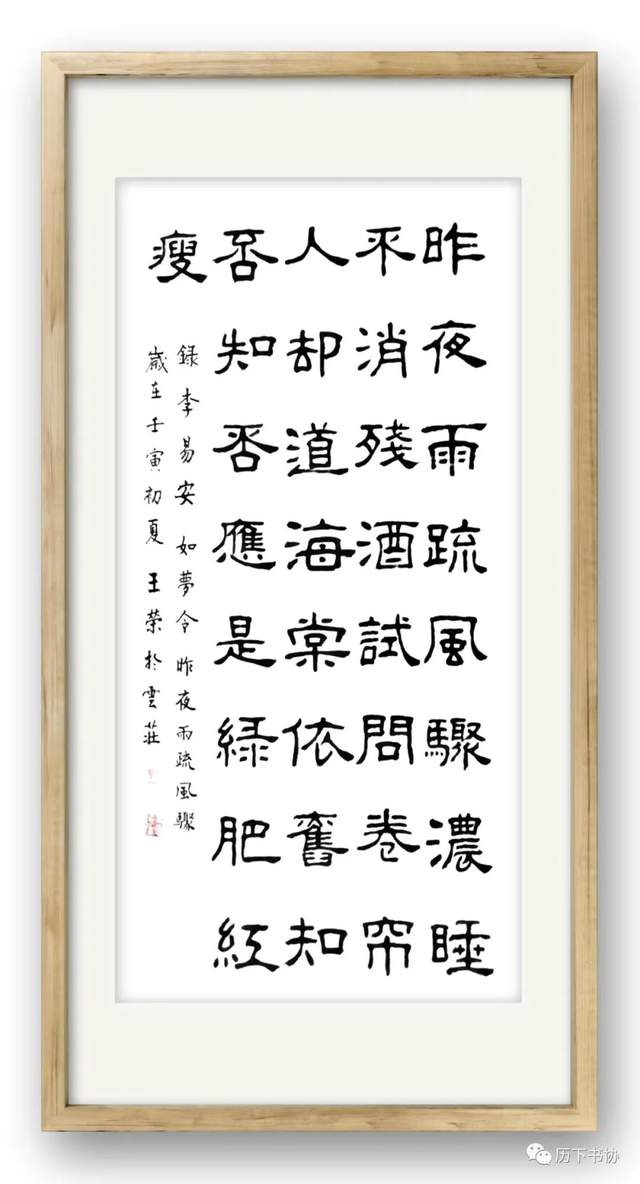 昨夜雨疏風驟濃睡
不消殘酒試問卷帘
人却道海棠依舊知
否知否應是緑肥紅
瘦
録李易安如夢令昨夜雨疏風驟
歲在壬寅初夏王榮於雲莊
历下书协